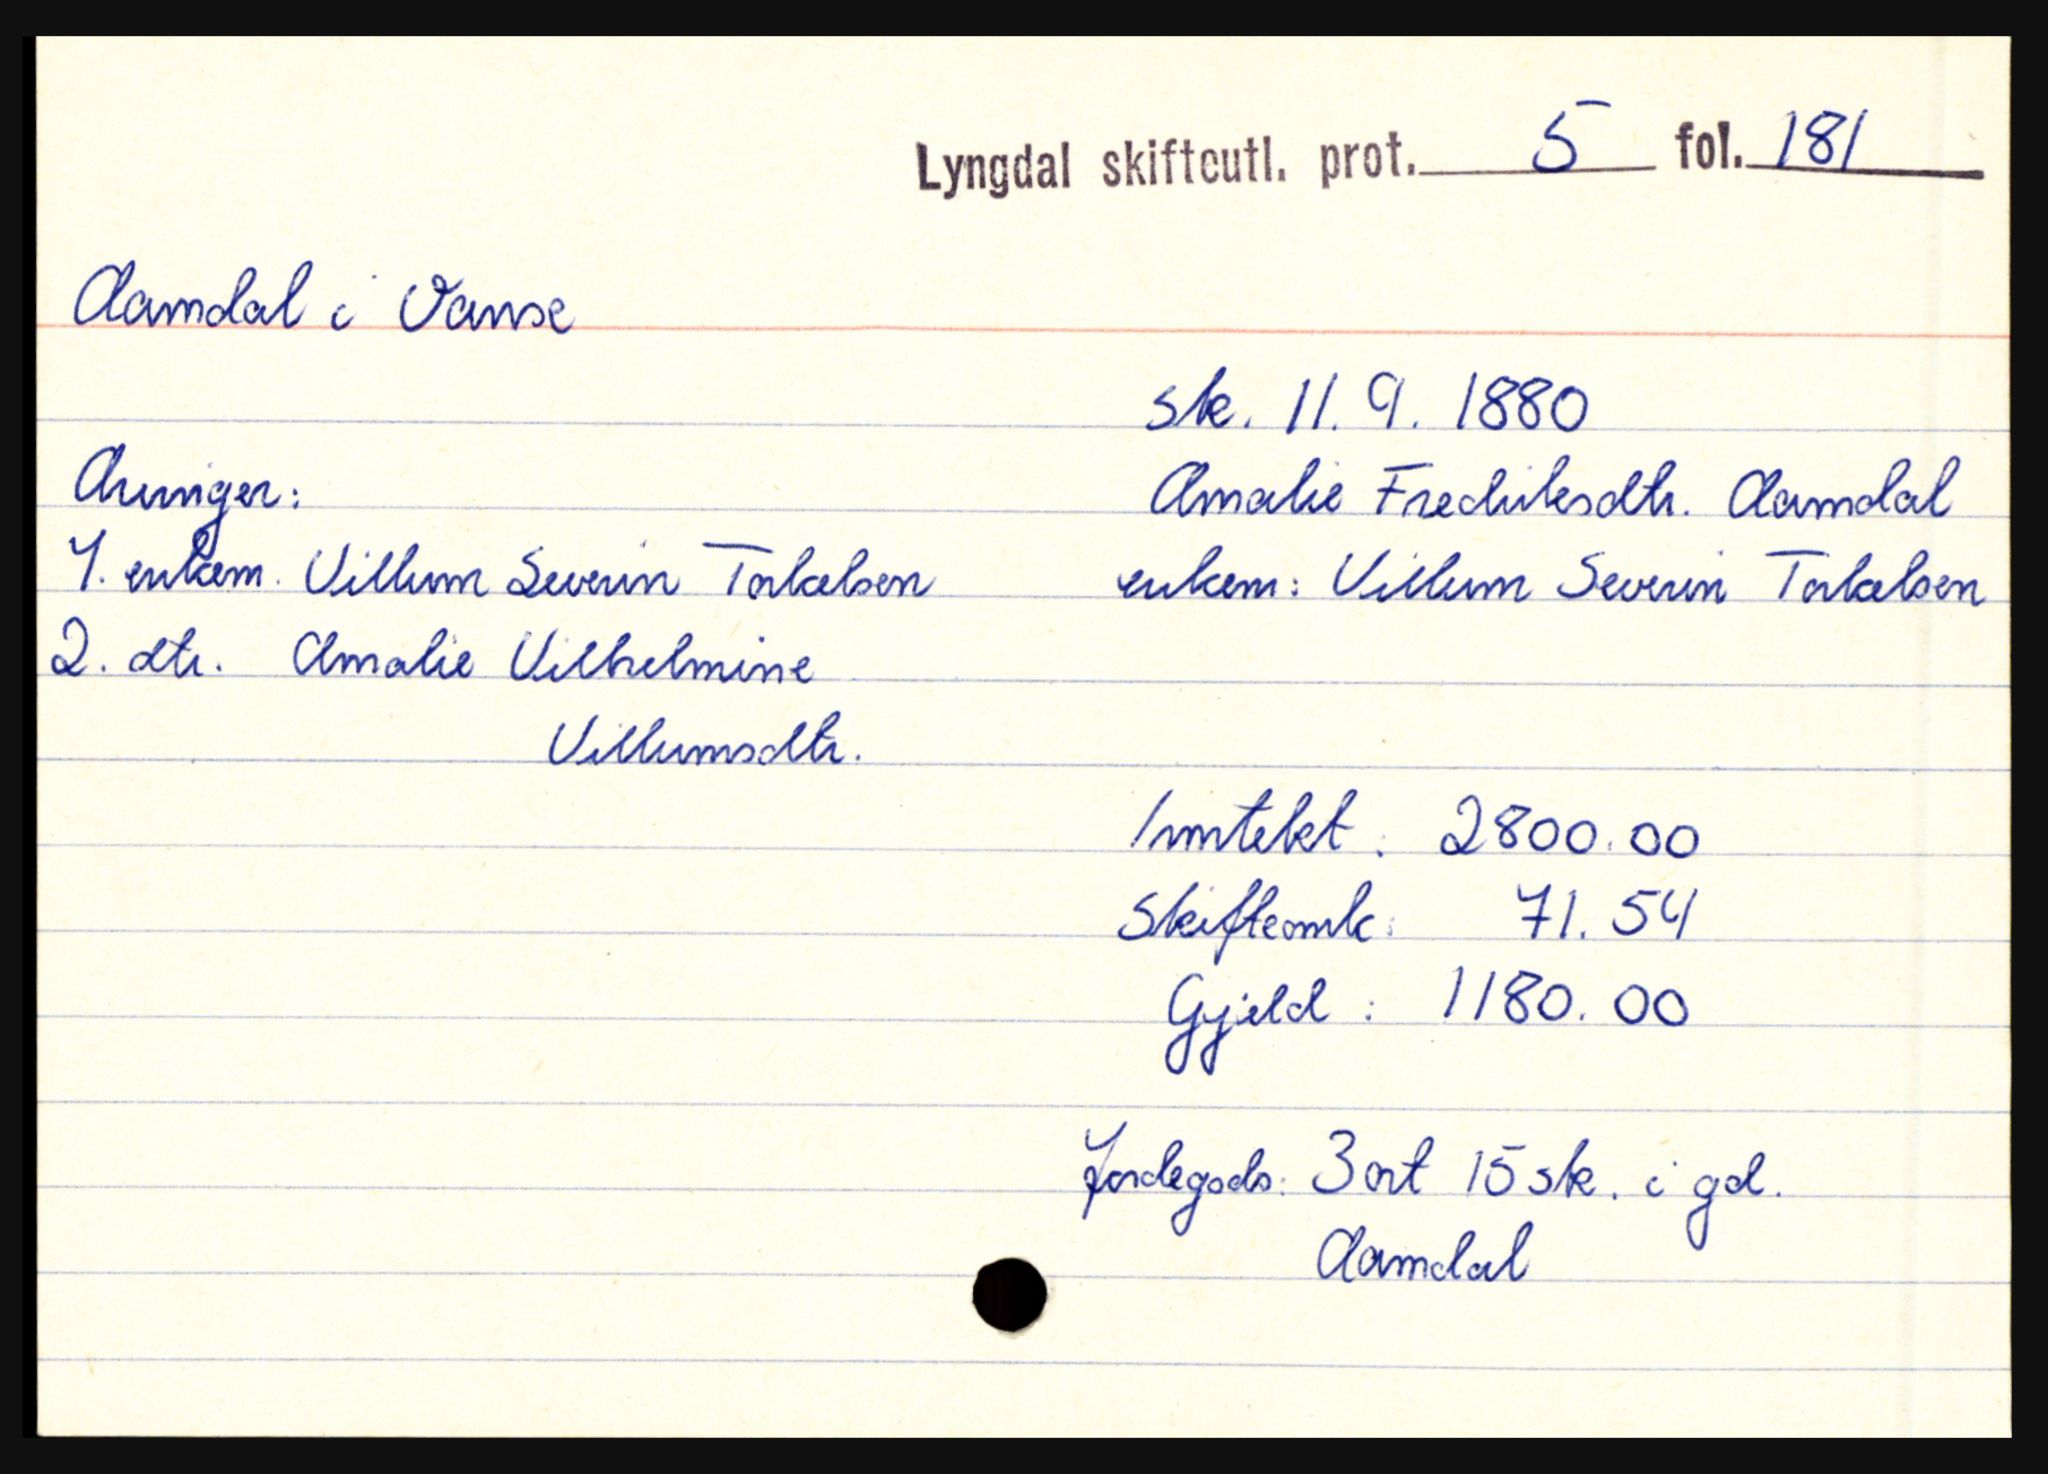 Lyngdal skifteutl. prot. 5 fol. 181
Aamdal i Vanse
sk. 11. 9. 1880
Arvinger:
Amalie Fredriksdtr. Aamdal
1. enkem. Villum Severin Torkelsen
enkem: Villum Severin Torkelsen
2. dtr. Amalie Vilhelmine
Villumsdtr.
Inntekt: 2800.00
Skifteomk: 71.54
Gjeld: 1180.00
Jordegods: 3 ort 15 sk. i gd.
Aamdal